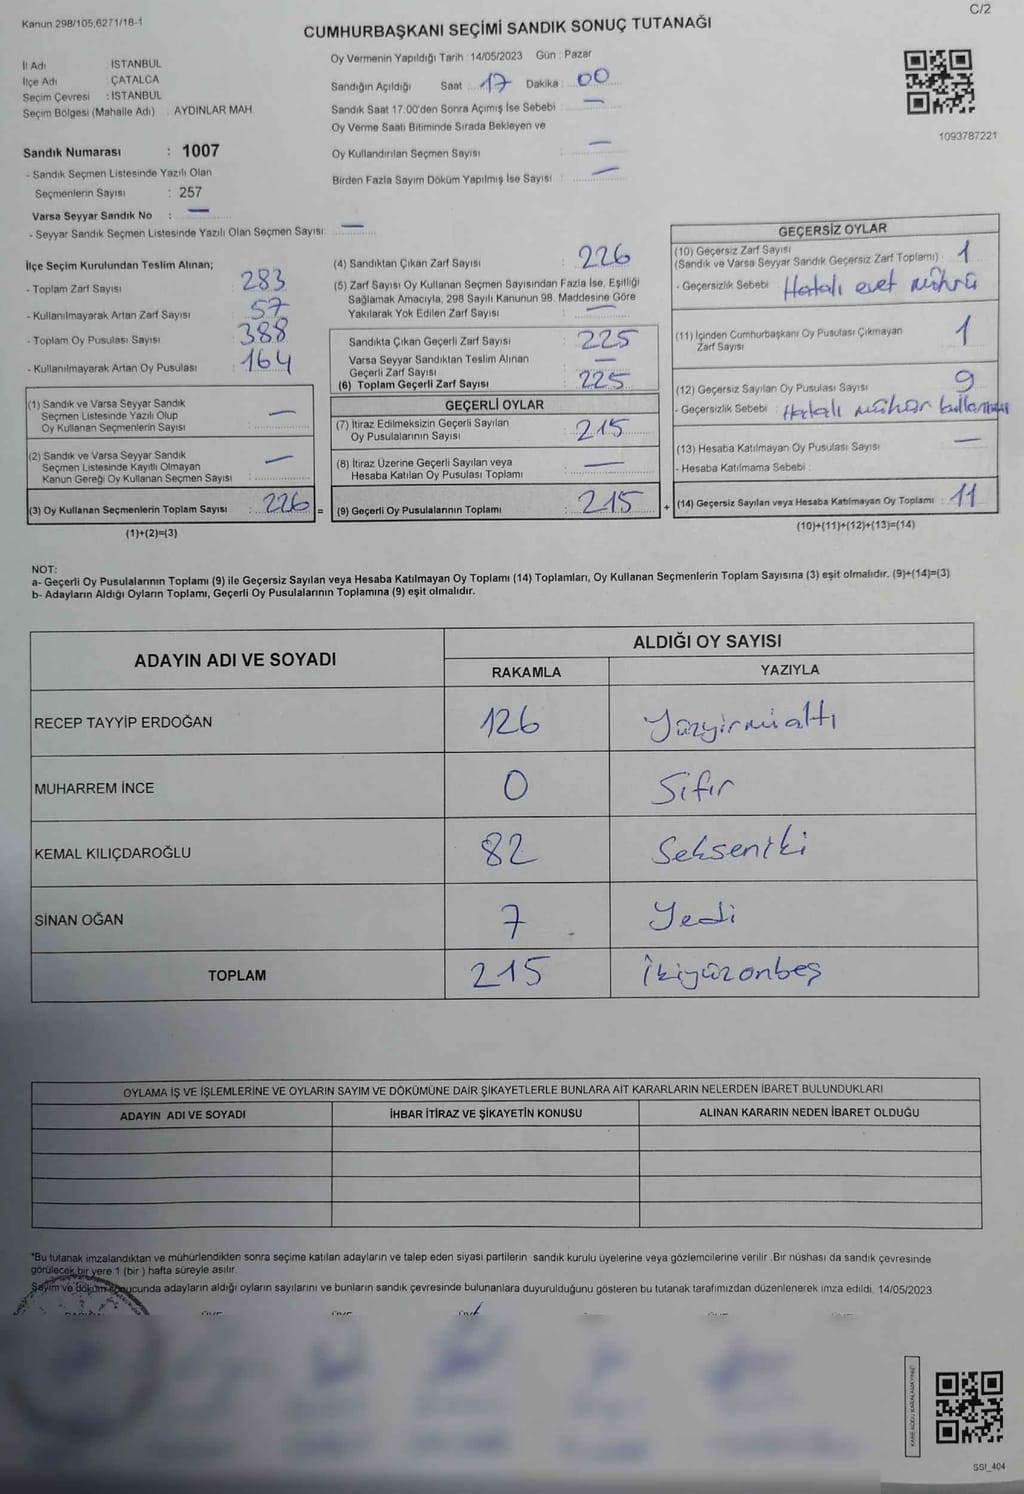 Kanun 298/105,6271/18-1
C/2
CUMHURBAŞKANI SEÇİMİ SANDIK SONUÇ TUTANAĞI
İl Adı : İSTANBUL
İlçe Adı : ÇATALCA
Seçim Çevresi : İSTANBUL
Seçim Bölgesi (Mahalle Adı) : AYDINLAR MAH.
Sandık Numarası : 1007
- Sandık Seçmen Listesinde Yazılı Olan
Seçmenlerin Sayısı : 257
Varsa Seyyar Sandık No : —
- Seyyar Sandık Seçmen Listesinde Yazılı Olan Seçmen Sayısı: —
Oy Vermenin Yapıldığı Tarih : 14/05/2023 Gün : Pazar
Sandığın Açıldığı Saat : 17 Dakika : 00
Sandık Saat 17:00'den Sonra Açımış İse Sebebi : —
Oy Verme Saati Bitiminde Sırada Bekleyen ve
Oy Kullandırılan Seçmen Sayısı : —
Birden Fazla Sayım Döküm Yapılmış İse Sayısı : —
1093787221
İlçe Seçim Kurulundan Teslim Alınan;
- Toplam Zarf Sayısı : 283
- Kullanılmayarak Artan Zarf Sayısı : 57
- Toplam Oy Pusulası Sayısı : 388
- Kullanılmayarak Artan Oy Pusulası : 164
(1) Sandık ve Varsa Seyyar Sandık
Seçmen Listesinde Yazılı Olup
Oy Kullanan Seçmenlerin Sayısı : —
(2) Sandık ve Varsa Seyyar Sandık
Seçmen Listesinde Kayıtlı Olmayan
Kanun Gereği Oy Kullanan Seçmen Sayısı : —
(3) Oy Kullanan Seçmenlerin Toplam Sayısı : 226 =
(1)+(2)=(3)
(4) Sandıktan Çıkan Zarf Sayısı : 226
(5) Zarf Sayısı Oy Kullanan Seçmen Sayısından Fazla İse, Eşitliği
Sağlamak Amacıyla; 298 Sayılı Kanunun 98. Maddesine Göre
Yakılarak Yok Edilen Zarf Sayısı : —
Sandıkta Çıkan Geçerli Zarf Sayısı : 225
Varsa Seyyar Sandıktan Teslim Alınan
Geçerli Zarf Sayısı : —
(6) Toplam Geçerli Zarf Sayısı : 225
GEÇERLİ OYLAR
(7) İtiraz Edilmeksizin Geçerli Sayılan
Oy Pusulalarının Sayısı : 215
(8) İtiraz Üzerine Geçerli Sayılan veya
Hesaba Katılan Oy Pusulası Toplamı : —
(9) Geçerli Oy Pusulalarının Toplamı : 215 +
GEÇERSİZ OYLAR
(10) Geçersiz Zarf Sayısı
(Sandık ve Varsa Seyyar Sandık Geçersiz Zarf Toplamı) : 1
- Geçersizlik Sebebi : Hatalı evet mührü
(11) İçinden Cumhurbaşkanı Oy Pusulası Çıkmayan
Zarf Sayısı : 1
(12) Geçersiz Sayılan Oy Pusulası Sayısı : 9
- Geçersizlik Sebebi : Hatalı mühür
(13) Hesaba Katılmayan Oy Pusulası Sayısı : —
- Hesaba Katılmama Sebebi :
(14) Geçersiz Sayılan veya Hesaba Katılmayan Oy Toplamı : 11
(10)+(11)+(12)+(13)=(14)
NOT:
a- Geçerli Oy Pusulalarının Toplamı (9) ile Geçersiz Sayılan veya Hesaba Katılmayan Oy Toplamı (14) Toplamları, Oy Kullanan Seçmenlerin Toplam Sayısına (3) eşit olmalıdır. (9)+(14)=(3)
b- Adayların Aldığı Oyların Toplamı, Geçerli Oy Pusulalarının Toplamına (9) eşit olmalıdır.
ADAYIN ADI VE SOYADI ALDIĞI OY SAYISI
RAKAMLA YAZIYLA
RECEP TAYYİP ERDOĞAN 126 Yüzyirmialtı
MUHARREM İNCE 0 Sıfır
KEMAL KILIÇDAROĞLU 82 Sekseniki
SİNAN OĞAN 7 Yedi
TOPLAM 215 İkiyüzonbeş
OYLAMA İŞ VE İŞLEMLERİNE VE OYLARIN SAYIM VE DÖKÜMÜNE DAİR ŞİKAYETLERLE BUNLARA AİT KARARLARIN NELERDEN İBARET BULUNDUKLARI
ADAYIN ADI VE SOYADI İHBAR İTİRAZ VE ŞİKAYETİN KONUSU ALINAN KARARIN NEDEN İBARET OLDUĞU
*Bu tutanak imzalandıktan ve mühürlendikten sonra seçime katılan adayların ve talep eden siyasi partilerin sandık kurulu üyelerine veya gözlemcilerine verilir. Bir nüshası da sandık çevresinde
görülecek bir yere 1 (bir) hafta süreyle asılır.
Sayım ve döküm sonucunda adayların aldığı oyların sayılarını ve bunların sandık çevresinde bulunanlara duyurulduğunu gösteren bu tutanak tarafımızdan düzenlenerek imza edildi. 14/05/2023
KARE KODU KARALAMAYINIZ!
SSI_404